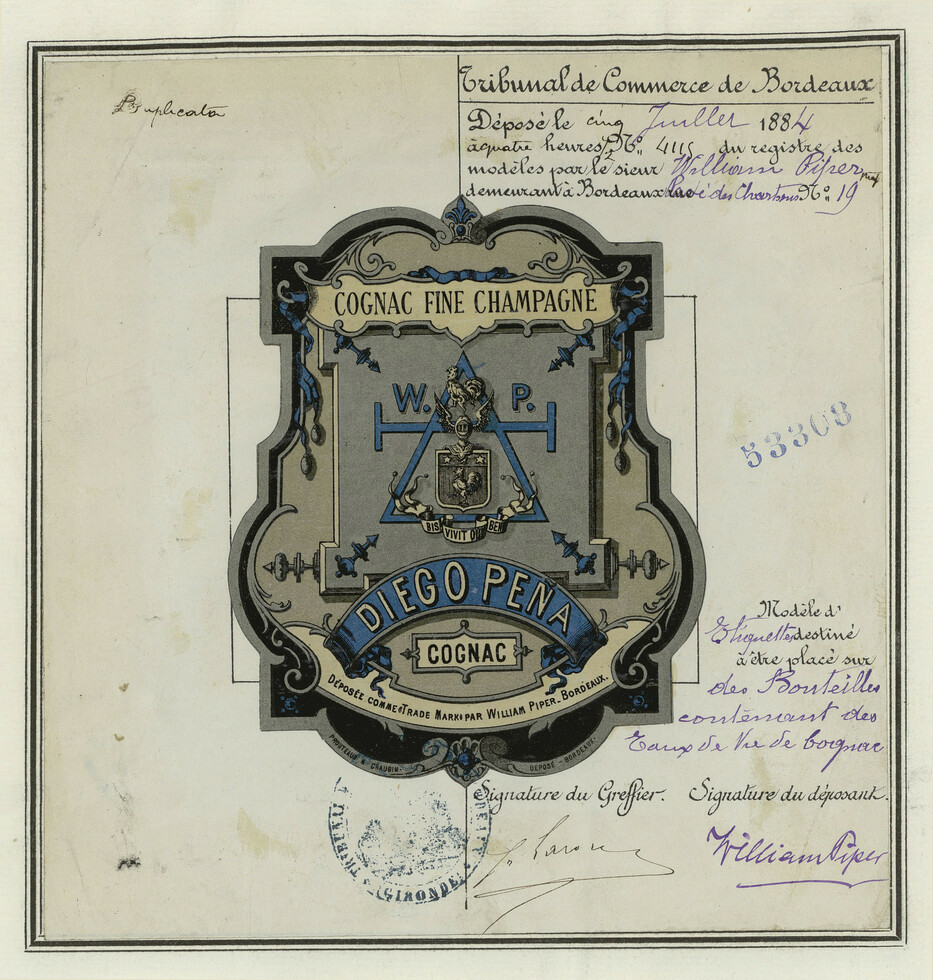 Duplicata
Tribunal de Commerce de Bordeaux
Déposé le cinq Juillet 1884
à quatre heures ½ N° 4115 du registre des
modèles par le sieur William Piper
demeurant à Bordeaux rue Pavé des Chartrons N° 19
COGNAC FINE CHAMPAGNE
W. P.
BIS VIVIT QUI BENE
53308
DIEGO PEÑA
COGNAC
DÉPOSÉE COMME «TRADE MARK» PAR WILLIAM PIPER_BORDEAUX.
DÉPOSÉ - BORDEAUX
Modèle d'
Etiquettes destiné
à être placé sur
des Bouteilles
contenant des
Eaux de Vie de Cognac
Signature du Greffier. Signature du déposant.
William Piper
GIRONDE